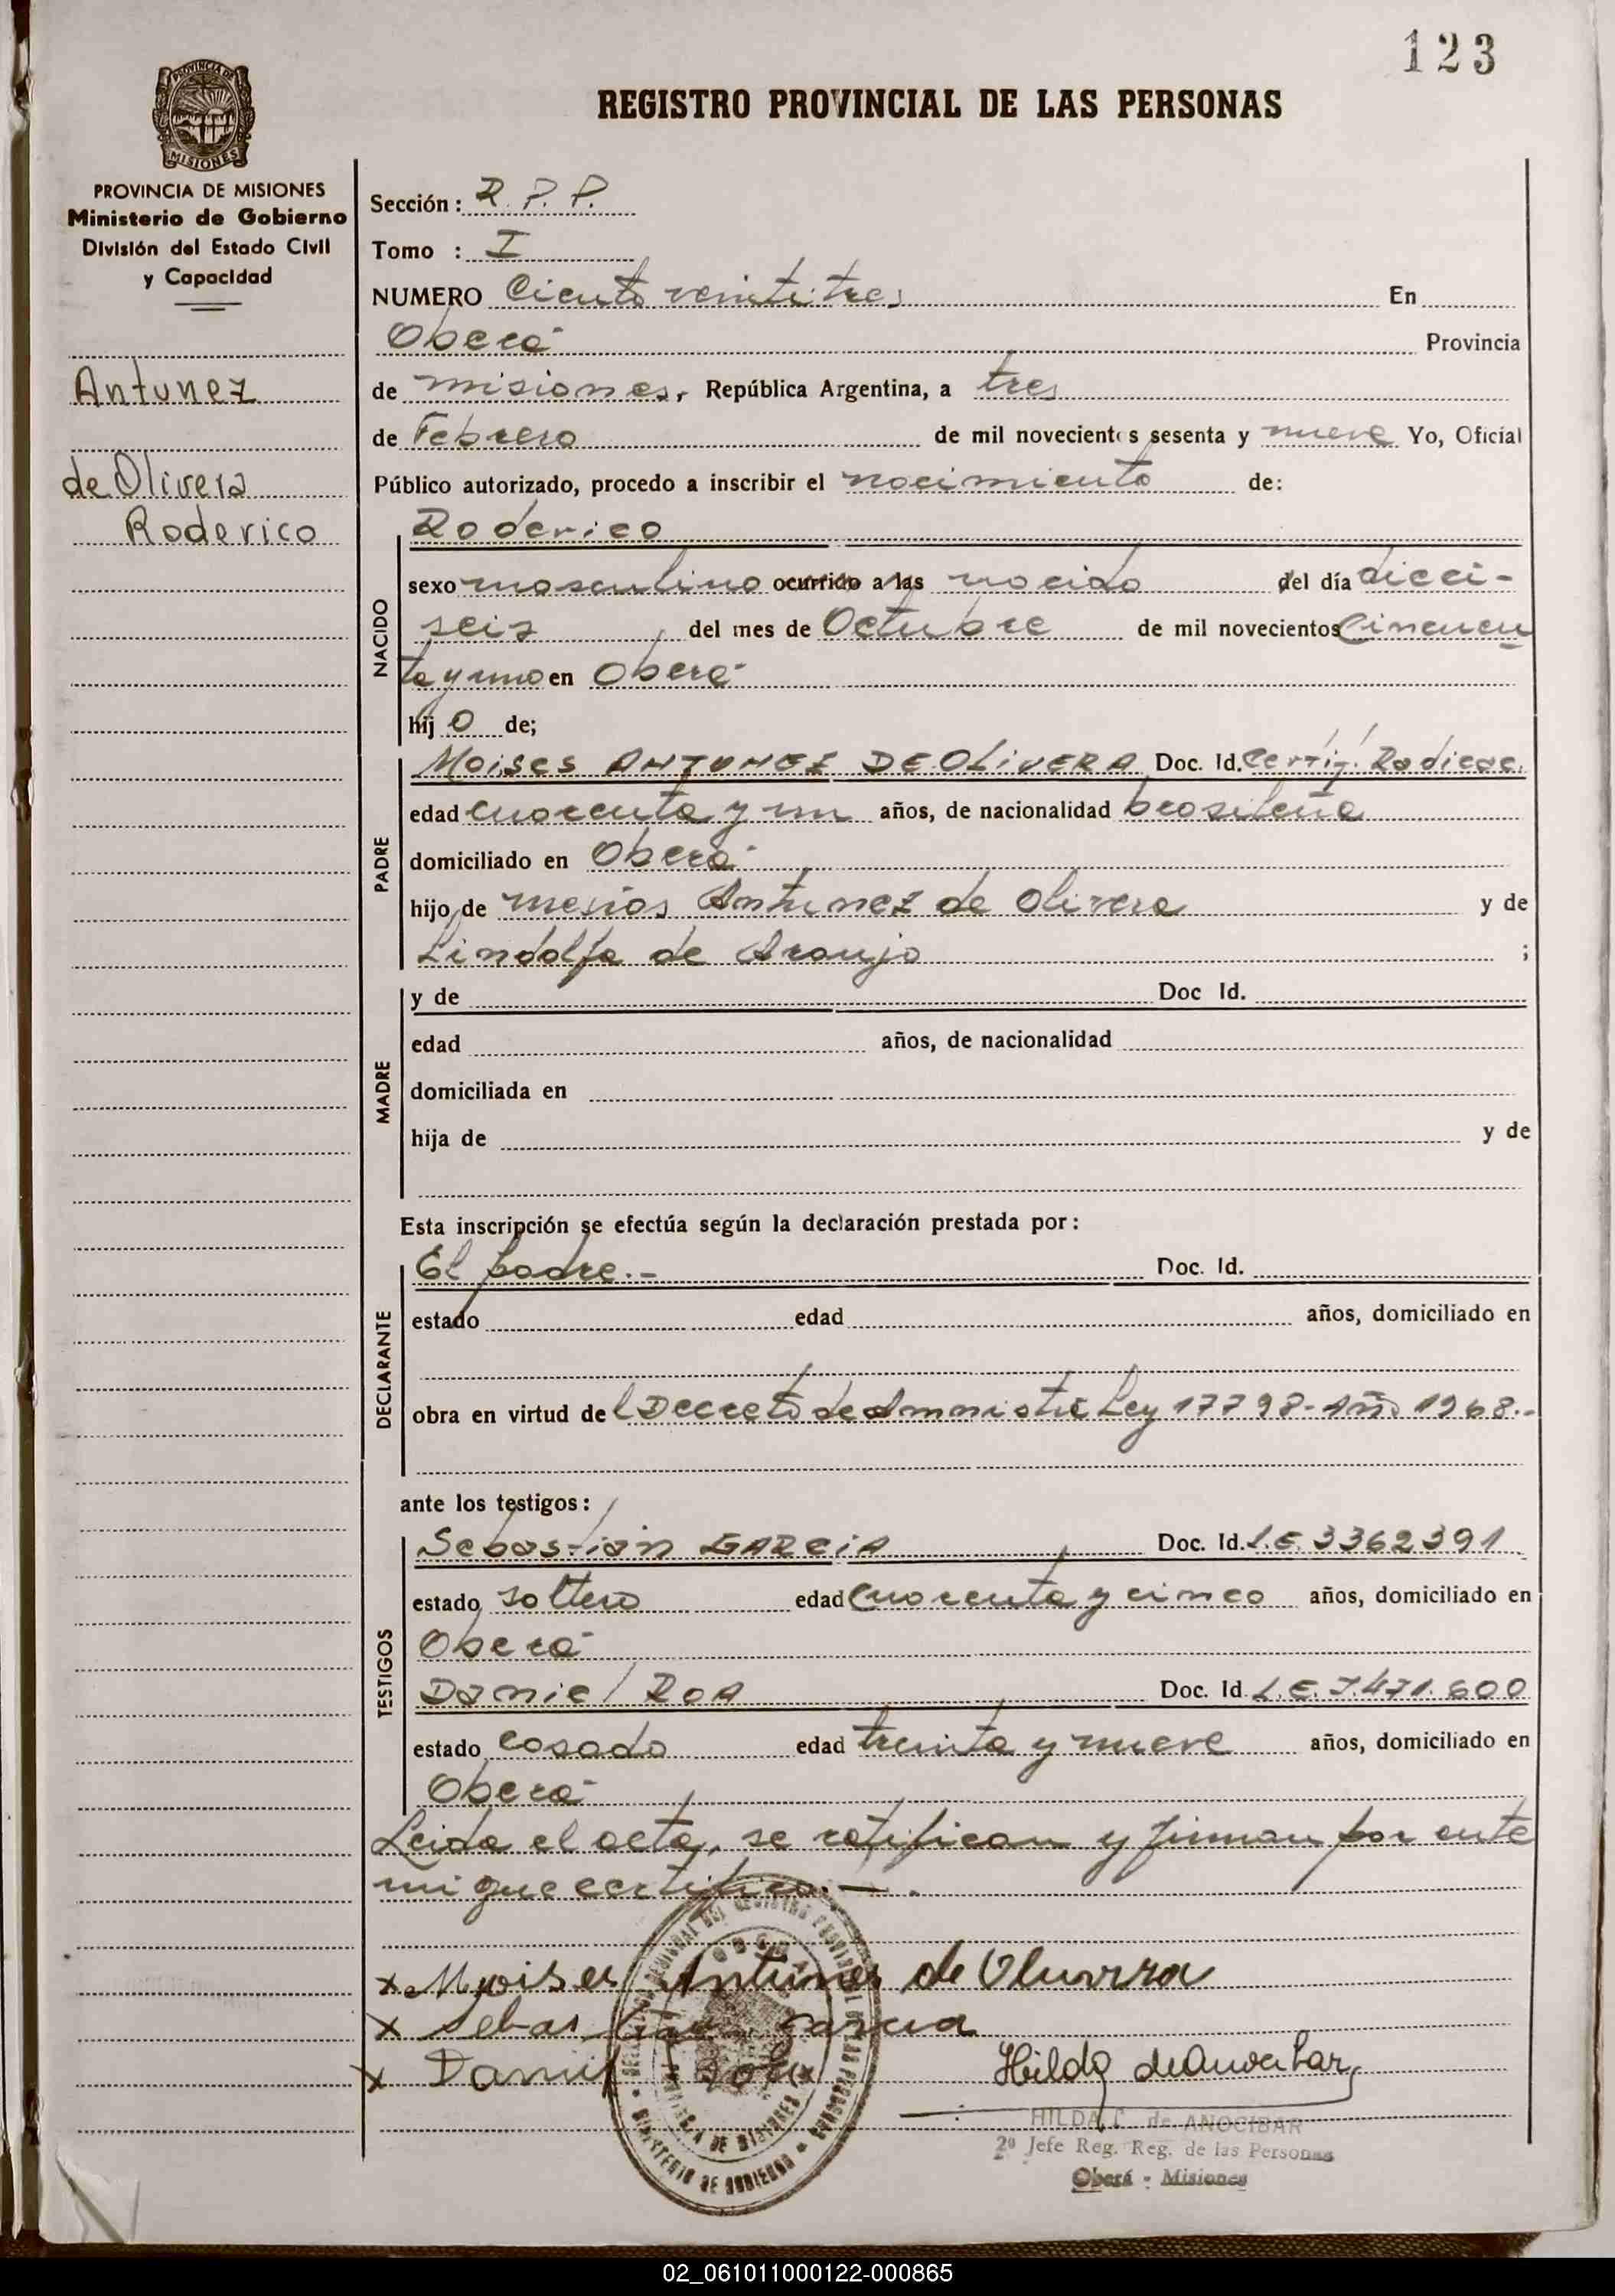 123
REGISTRO PROVINCIAL DE LAS PERSONAS
PROVINCIA DE
MISIONES
PROVINCIA DE MISIONES
Ministerio de Gobierno
División del Estado Civil
y Capacidad
Antunez
de Olivera
Roderico
Sección: R. P. P.
Tomo : I
NUMERO Ciento veintitres En
Oberá Provincia
de misiones, República Argentina, a tres
de Febrero de mil novecientos sesenta y nueve Yo, Oficial
Público autorizado, procedo a inscribir el nacimiento de:
Roderico
NACIDO
sexo masculino ocurrido a las nacido del día dieci-
seis del mes de Octubre de mil novecientos Cincuen
ta y uno en Oberá
hij o de;
PADRE
Moises ANTUNEZ DE OLIVERA Doc. Id. Certif. Radicac.
edad cuarenta y un años, de nacionalidad brasileña
domiciliado en Oberá
hijo de mesias Antunez de Olivera y de
Lindolfa de Araujo ;
MADRE
y de Doc Id.
edad años, de nacionalidad
domiciliada en
hija de y de
Esta inscripción se efectúa según la declaración prestada por:
DECLARANTE
El padre.- Doc. Id.
estado edad años, domiciliado en
obra en virtud de l Decreto de Amnistia Ley 17798- Año 1968.-
ante los testigos:
TESTIGOS
Sebastián GARCIA Doc. Id. L.E. 3362391
estado soltero edad Cuarenta y cinco años, domiciliado en
Oberá
Daniel ROA Doc. Id L.E. 7.471.600
estado casado edad treinta y nueve años, domiciliado en
Oberá
Leida el acta, se ratifican y firman por ante
mi que certifico.-
x Moises Antunes de Oliverra
x Sebastian Garcia
x Daniel Roa
Hilda de Anocibar
HILDA C. de ANOCIBAR
2º Jefe Reg. Reg. de las Personas
Oberá - Misiones
PROVINCIA DE MISIONES
MINISTERIO DE GOBIERNO
02_061011000122-000865